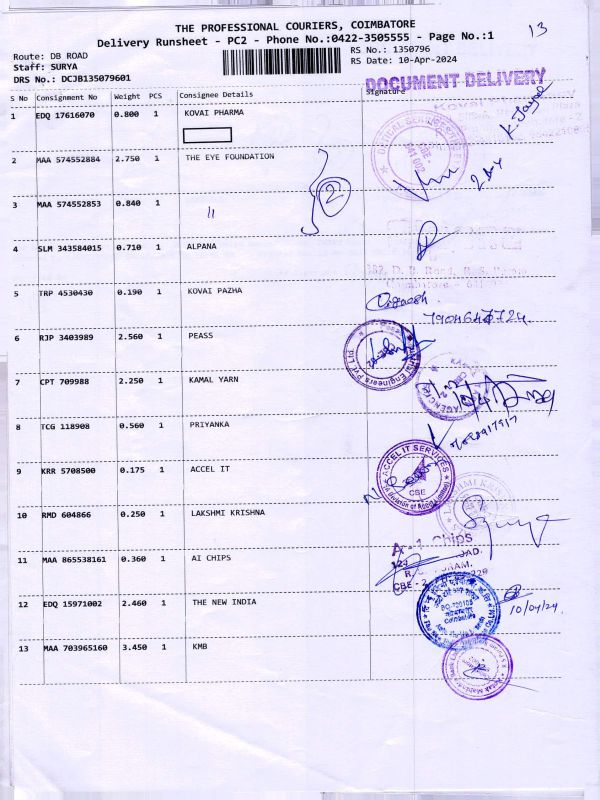 THE PROFESSIONAL COURIERS, COIMBATORE
13
Delivery Runsheet - PC2 - Phone No.:0422-3505555 - Page No.:1
Route: DB ROAD
RS No.: 1350796
Staff: SURYA
RS Date: 10-Apr-2024
DRS No.: DCJB135079601
DOCUMENT DELIVERY
S No Consignment No Weight PCS Consignee Details Signature
1 EDQ 17616070 0.800 1 KOVAI PHARMA
2 MAA 574552884 2.750 1 THE EYE FOUNDATION
2
3 MAA 574552853 0.840 1 "
4 SLM 343584015 0.710 1 ALPANA
5 TRP 4530430 0.190 1 KOVAI PAZHA
6 RJP 3403989 2.560 1 PEASS
7 CPT 709988 2.250 1 KAMAL YARN
8 TCG 118908 0.560 1 PRIYANKA
9 KRR 5708500 0.175 1 ACCEL IT
ACCEL IT SERVICES
CBE
10 RMD 604866 0.250 1 LAKSHMI KRISHNA
11 MAA 865538161 0.360 1 AI CHIPS
A-1 Chips
12 EDQ 15971002 2.460 1 THE NEW INDIA
10/04/24.
13 MAA 703965160 3.450 1 KMB